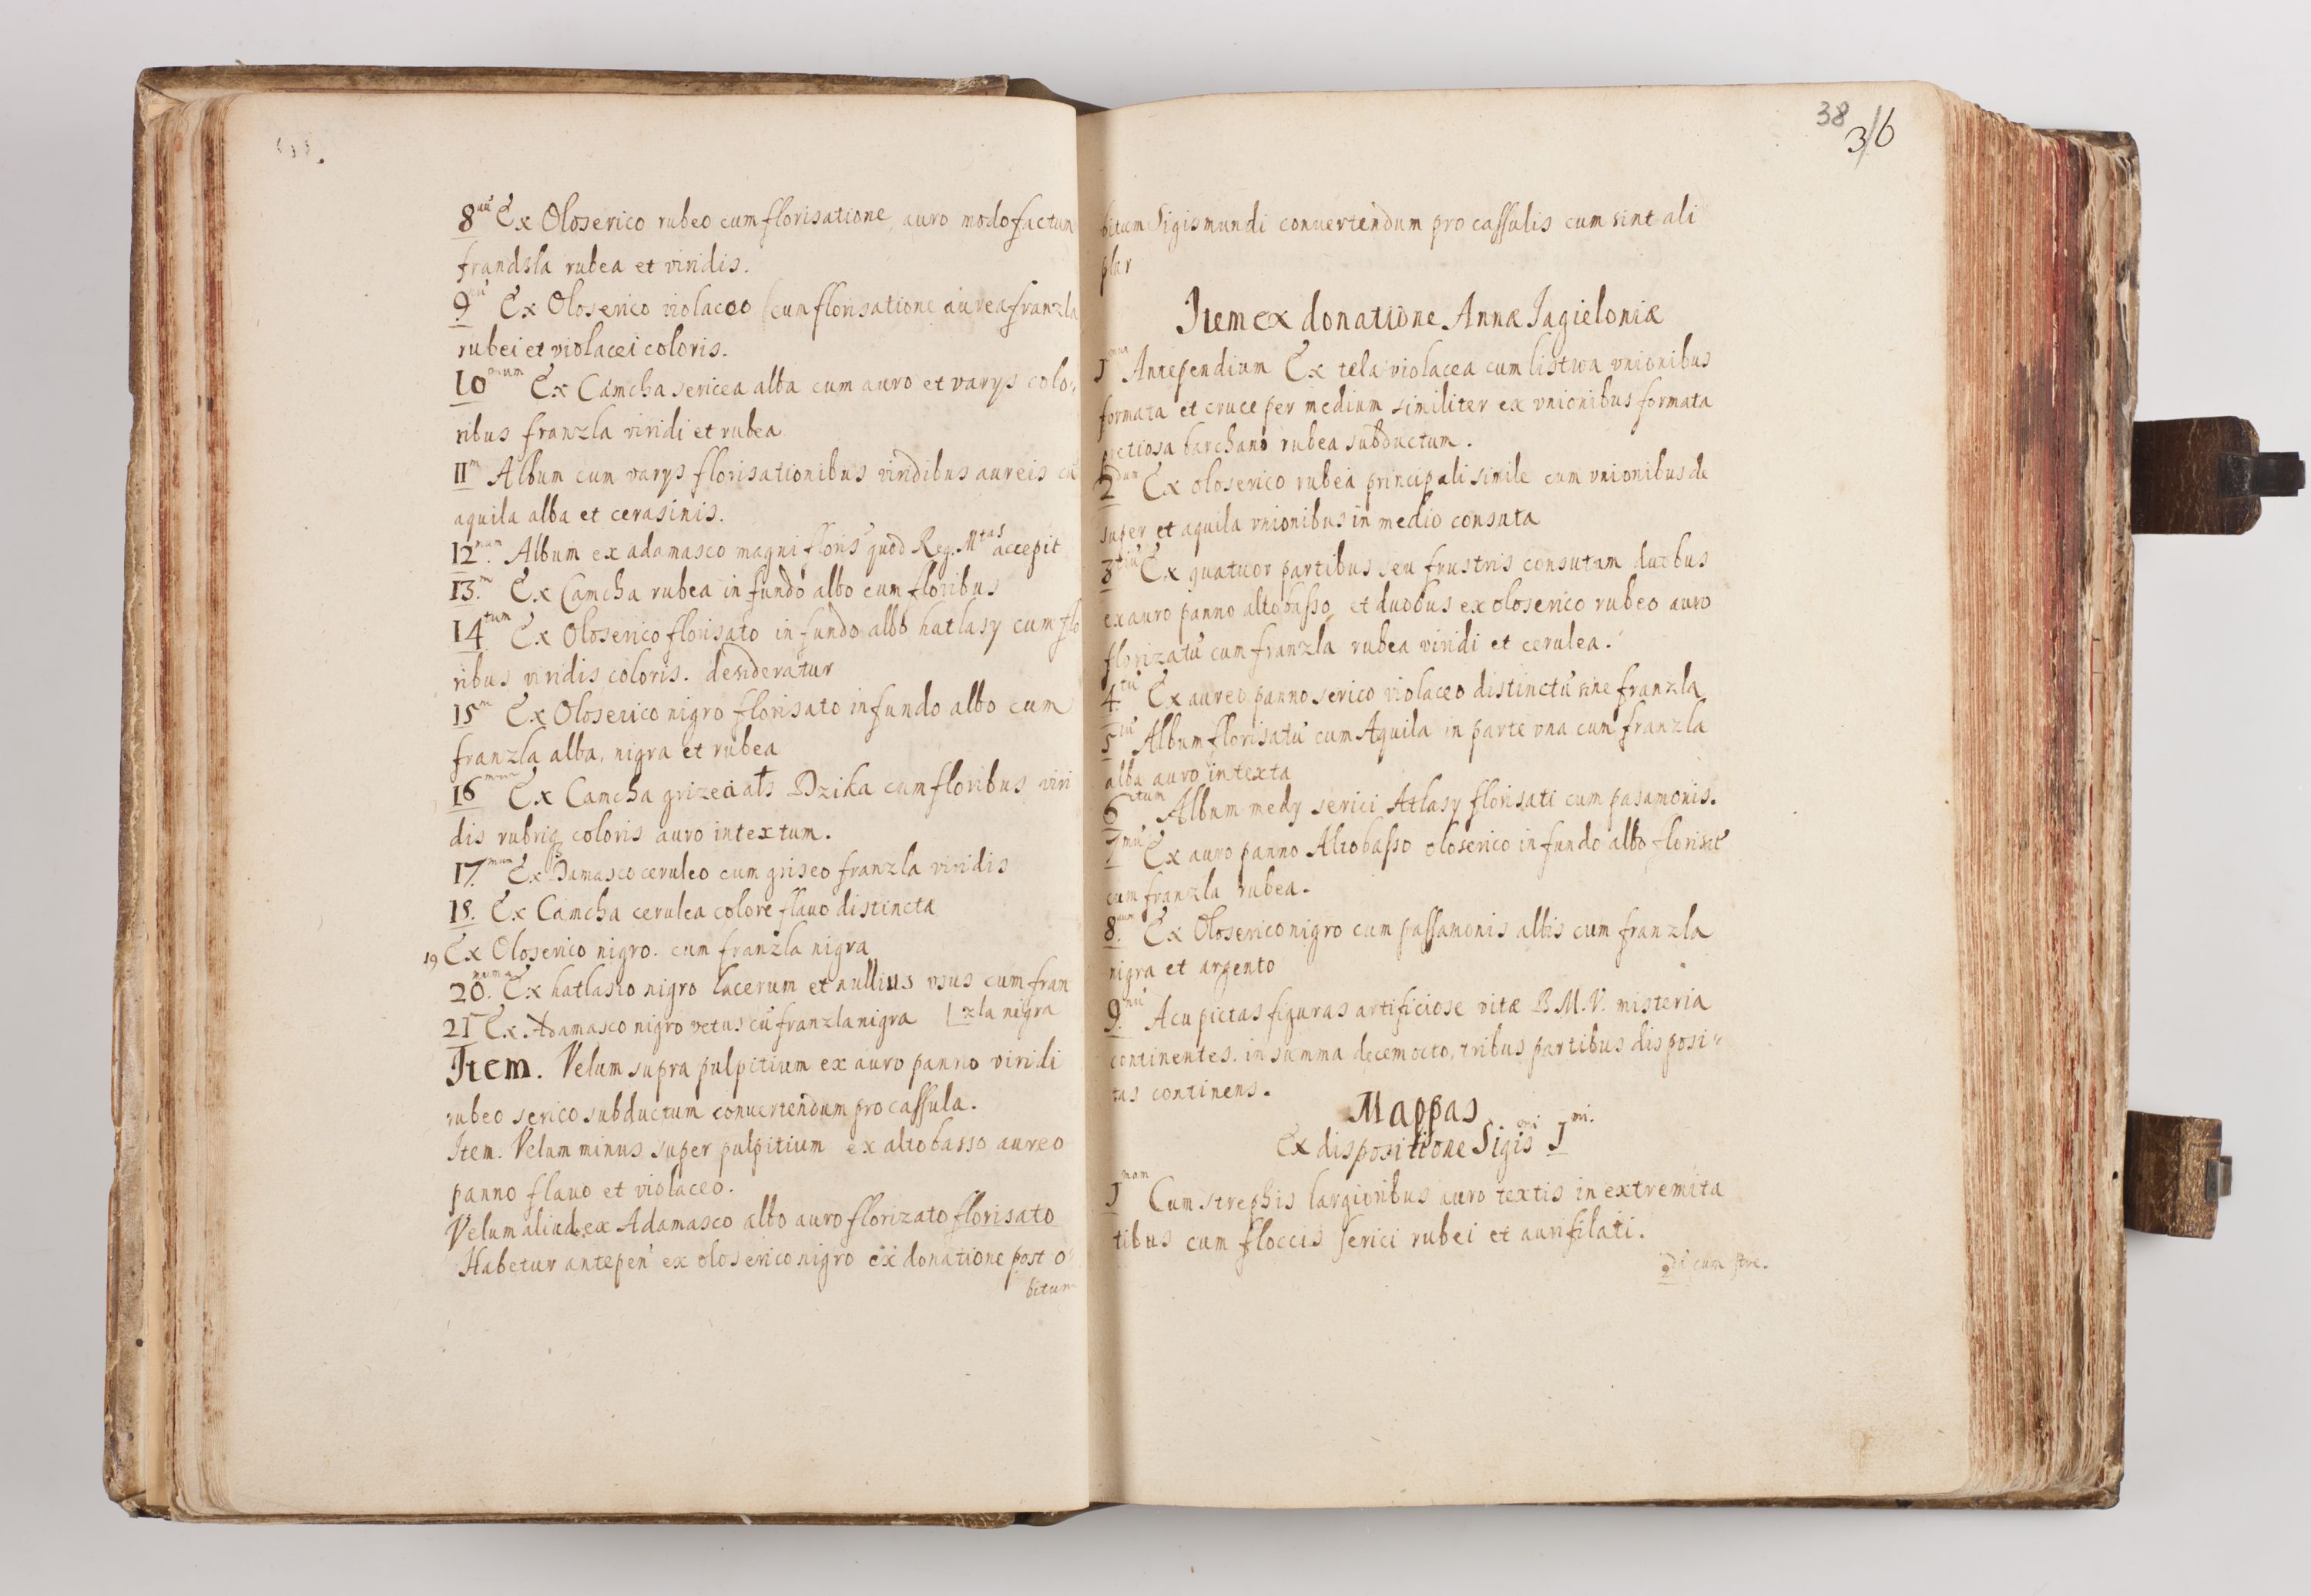 8uu Ex Oloserico rubeo cum florisatione auro modo factum
frandsla rubea et viridis.
9nu Ex Oloserico violaceo cum florisatione aurea franzla
rubei et violacei coloris.
10mum Ex Camcha sericea alba cum auro et varys colo,
ribus franzla viridi et rubea
11m Album cum varys florisationibus viridibus aureis cu
aquila alba et cerasinis.
12mum. Album ex adamasco magni floris quod Reg. Mtas accepit
13.m Ex Camcha rubea in fundo albo cum floribus
14tum Ex Oloserico florisato in fundo albo hatlasy cum flo
ribus viridis coloris. desideratur
15m Ex Oloserico nigro florisato in fundo albo cum
franzla alba, nigra et rubea
16mum Ex Camcha grizea als Dzika cum floribus viri
dis rubriq coloris auro intextum.
17.mum Ex Damasco ceruleo cum griseo franzla viridis
18. Ex Camcha cerulea colore flauo distincta
19 Ex Oloserico nigro. cum franzla nigra
20. Ex hatlasio nigro lacerum et nullius vsus cum fran
21 Ex. Adamasco nigro vetus cu franzla nigra zla nigra
Item. Velum supra pulpitium ex auro panno viridi
rubeo serico subductum conuertendum pro cassula.
Item. Velum minus super pulpitium ex altobasso aureo
panno flauo et violaceo.
Velum aliud ex Adamasco albo auro florizato florisato
Habetur antepen ex oloserico nigro ex donatione post o
bitum
38
36
bitum Sigismundi conuertendum pro cassulis cum sint ali
plur
Item ex donatione Annæ Jagieloniæ
1mum Antependium Ex tela violacea cum listwa vnionibus
formata et cruce per medium similiter ex vnionibus formata
pretiosa barchano rubea subductum.
2dum Ex oloserico rubea principali simile cum vnionibus de
super et aquila vnionibus in medio consuta
3tiu Ex quatuor partibus seu frustris consutum duobus
ex auro panno altobasso et duobus ex oloserico rubeo auro
florizatu cum franzla rubea viridi et cerulea.
4.tu Ex aureo panno serico violaceo distinctu sine franzla
5tu Album florisatu cum Aquila in parte vna cum franzla
alba auro intexta
6tum Album medy serici Atlasy florisati cum pasamonis.
7mu Ex auro panno Altobasso oloserico in fundo albo florisat
cum franzla rubea.
8.uum Ex Oloserico nigro cum passamonis albis cum franzla
nigra et argento
9.nu Acu pictas figuras artificiose vitæ B.M.V. misteria
continentes. in summa decem octo, tribus partibus disposi-
tas continens.
Mappas
Ex dispositione Sigismi Imi.
1mam Cum strephis largioribus auro textis in extremita
tibus cum floccis serici rubei et aurifilati.
cum stre.